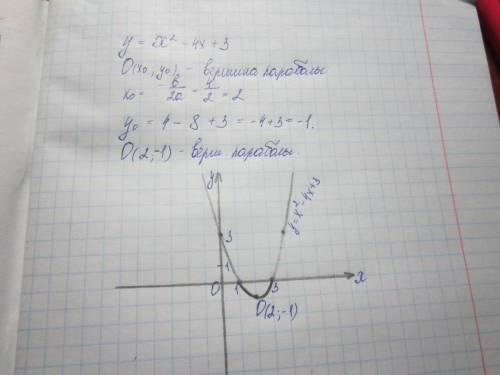 y = x² - 4x + 3
O(x₀; y₀) - вершина параболы
x₀ = -b/2a = 4/2 = 2
y₀ = 4 - 8 + 3 = -4+3 = -1.
O(2;-1) - верш. параболы.
y
y=x²-4x+3
3
1
0 1 3 x
O(2;-1)